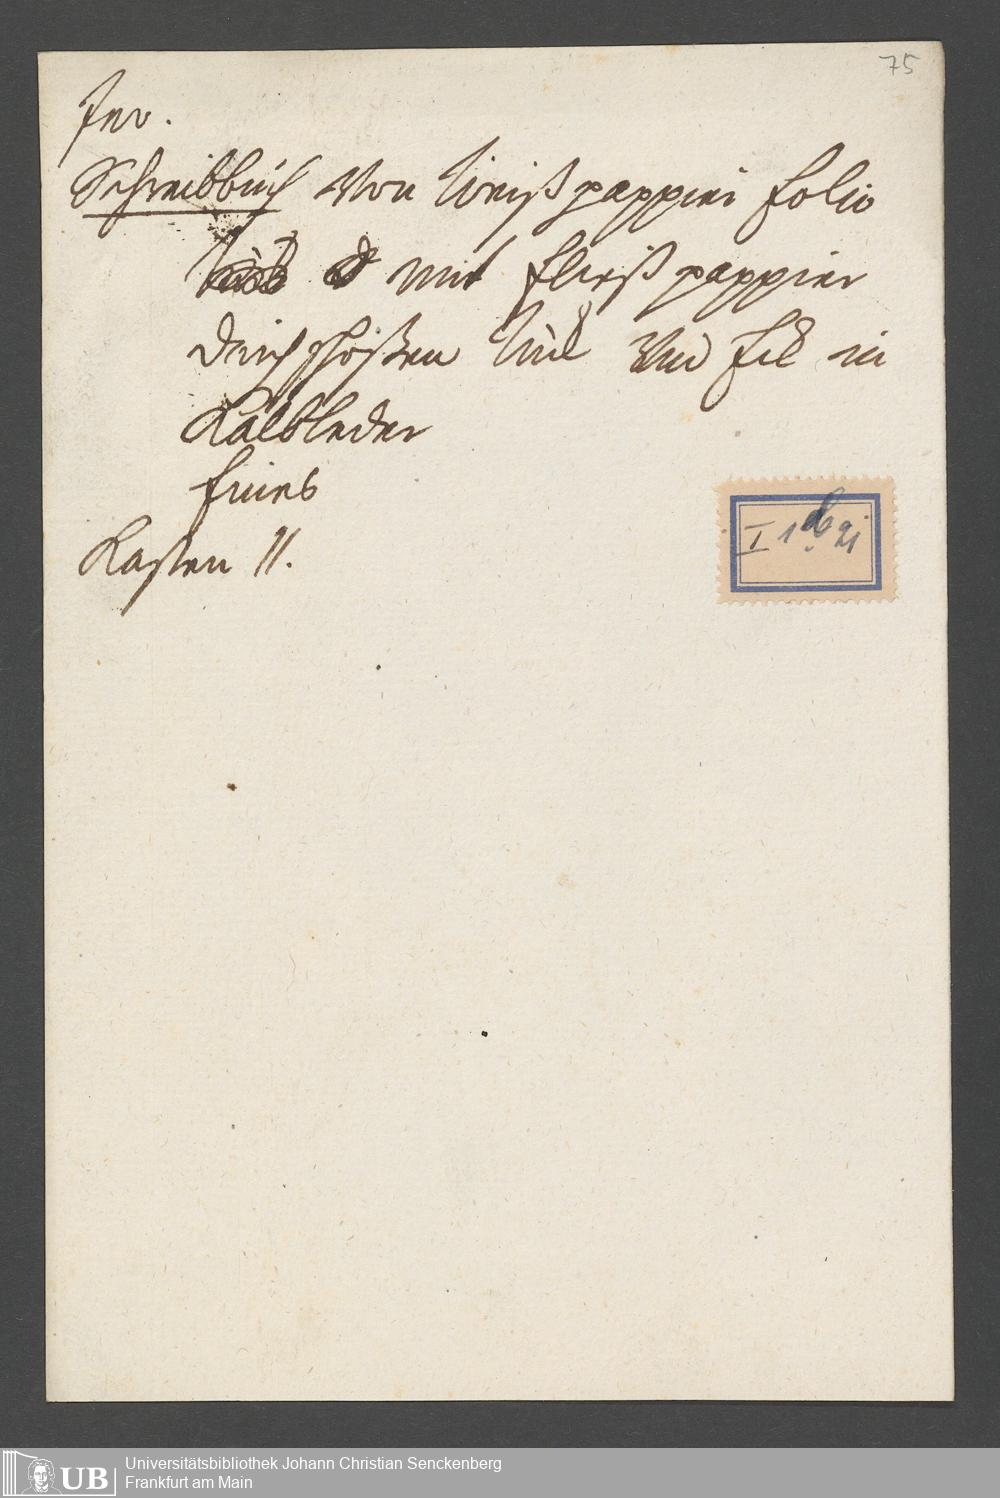 75
Inv.
Schreibbuch von Weiß pappier folio
mit fließ pappier
durchschoßen und in
Kalbleder
Kasten 11.
I 1
UB Universitätsbibliothek Johann Christian Senckenberg
Frankfurt am Main